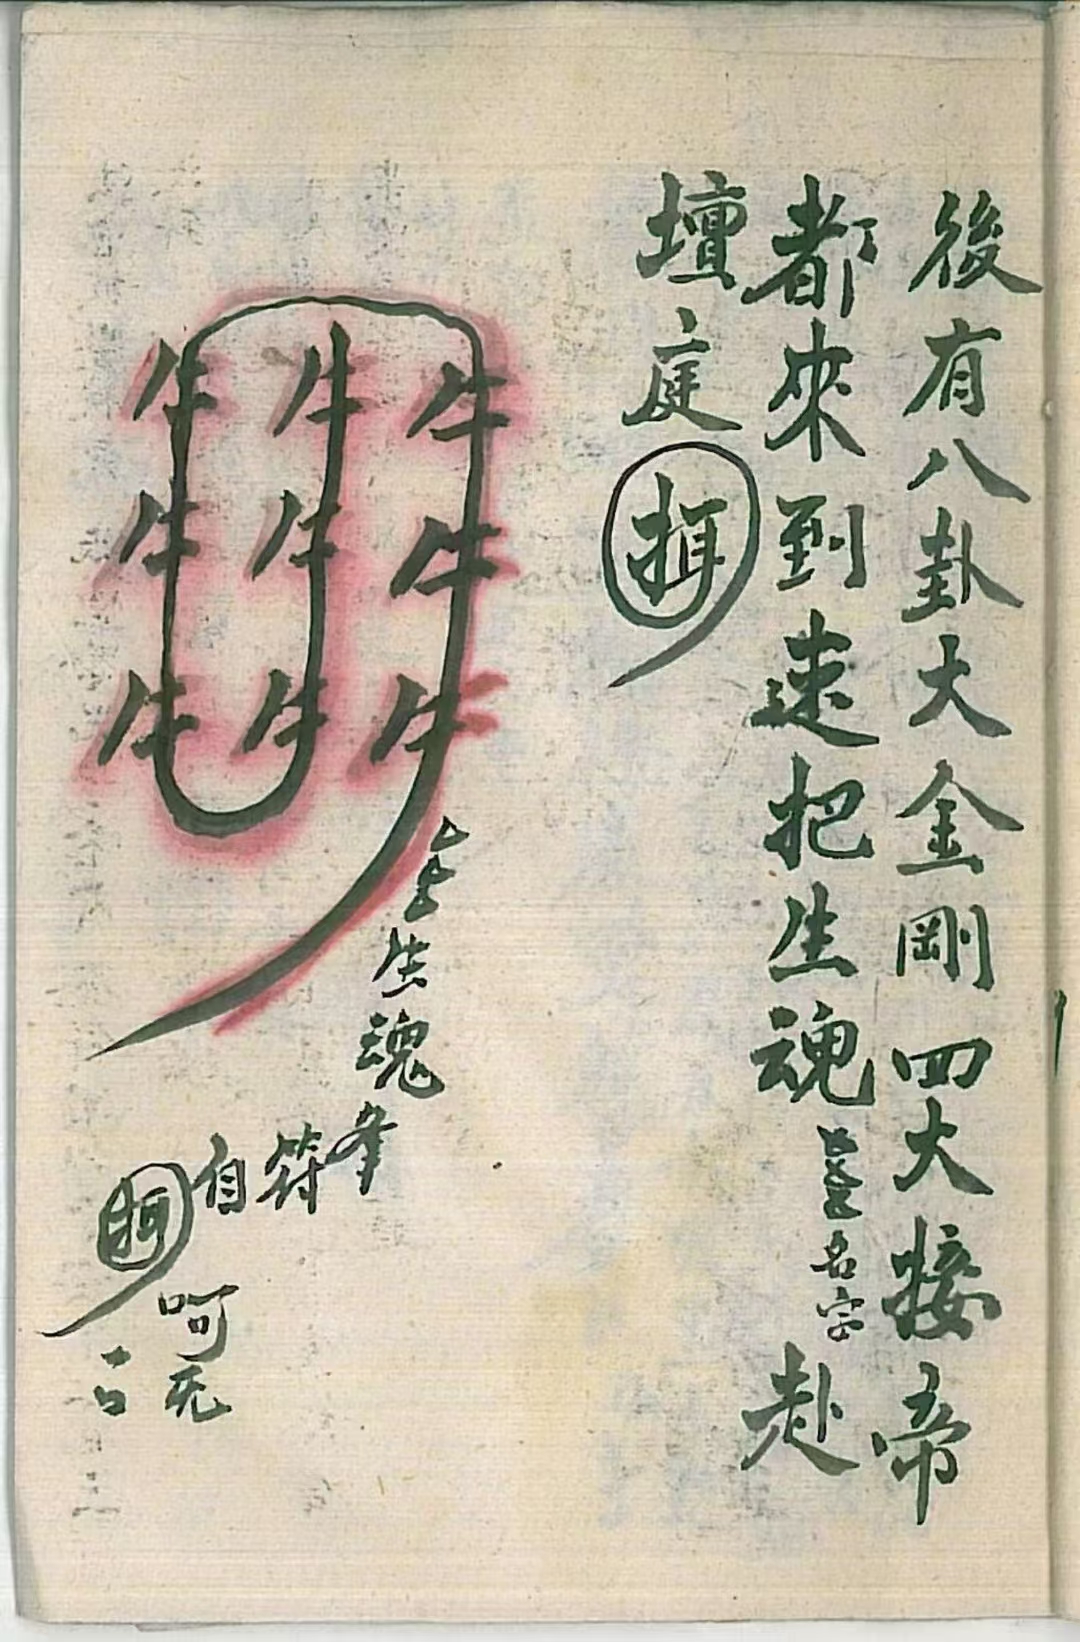 後有八卦大金剛四大接帝
都來到速把生魂 名字赴
壇庭
牛牛牛
牛牛牛
牛牛牛
生魂
符
自
呵